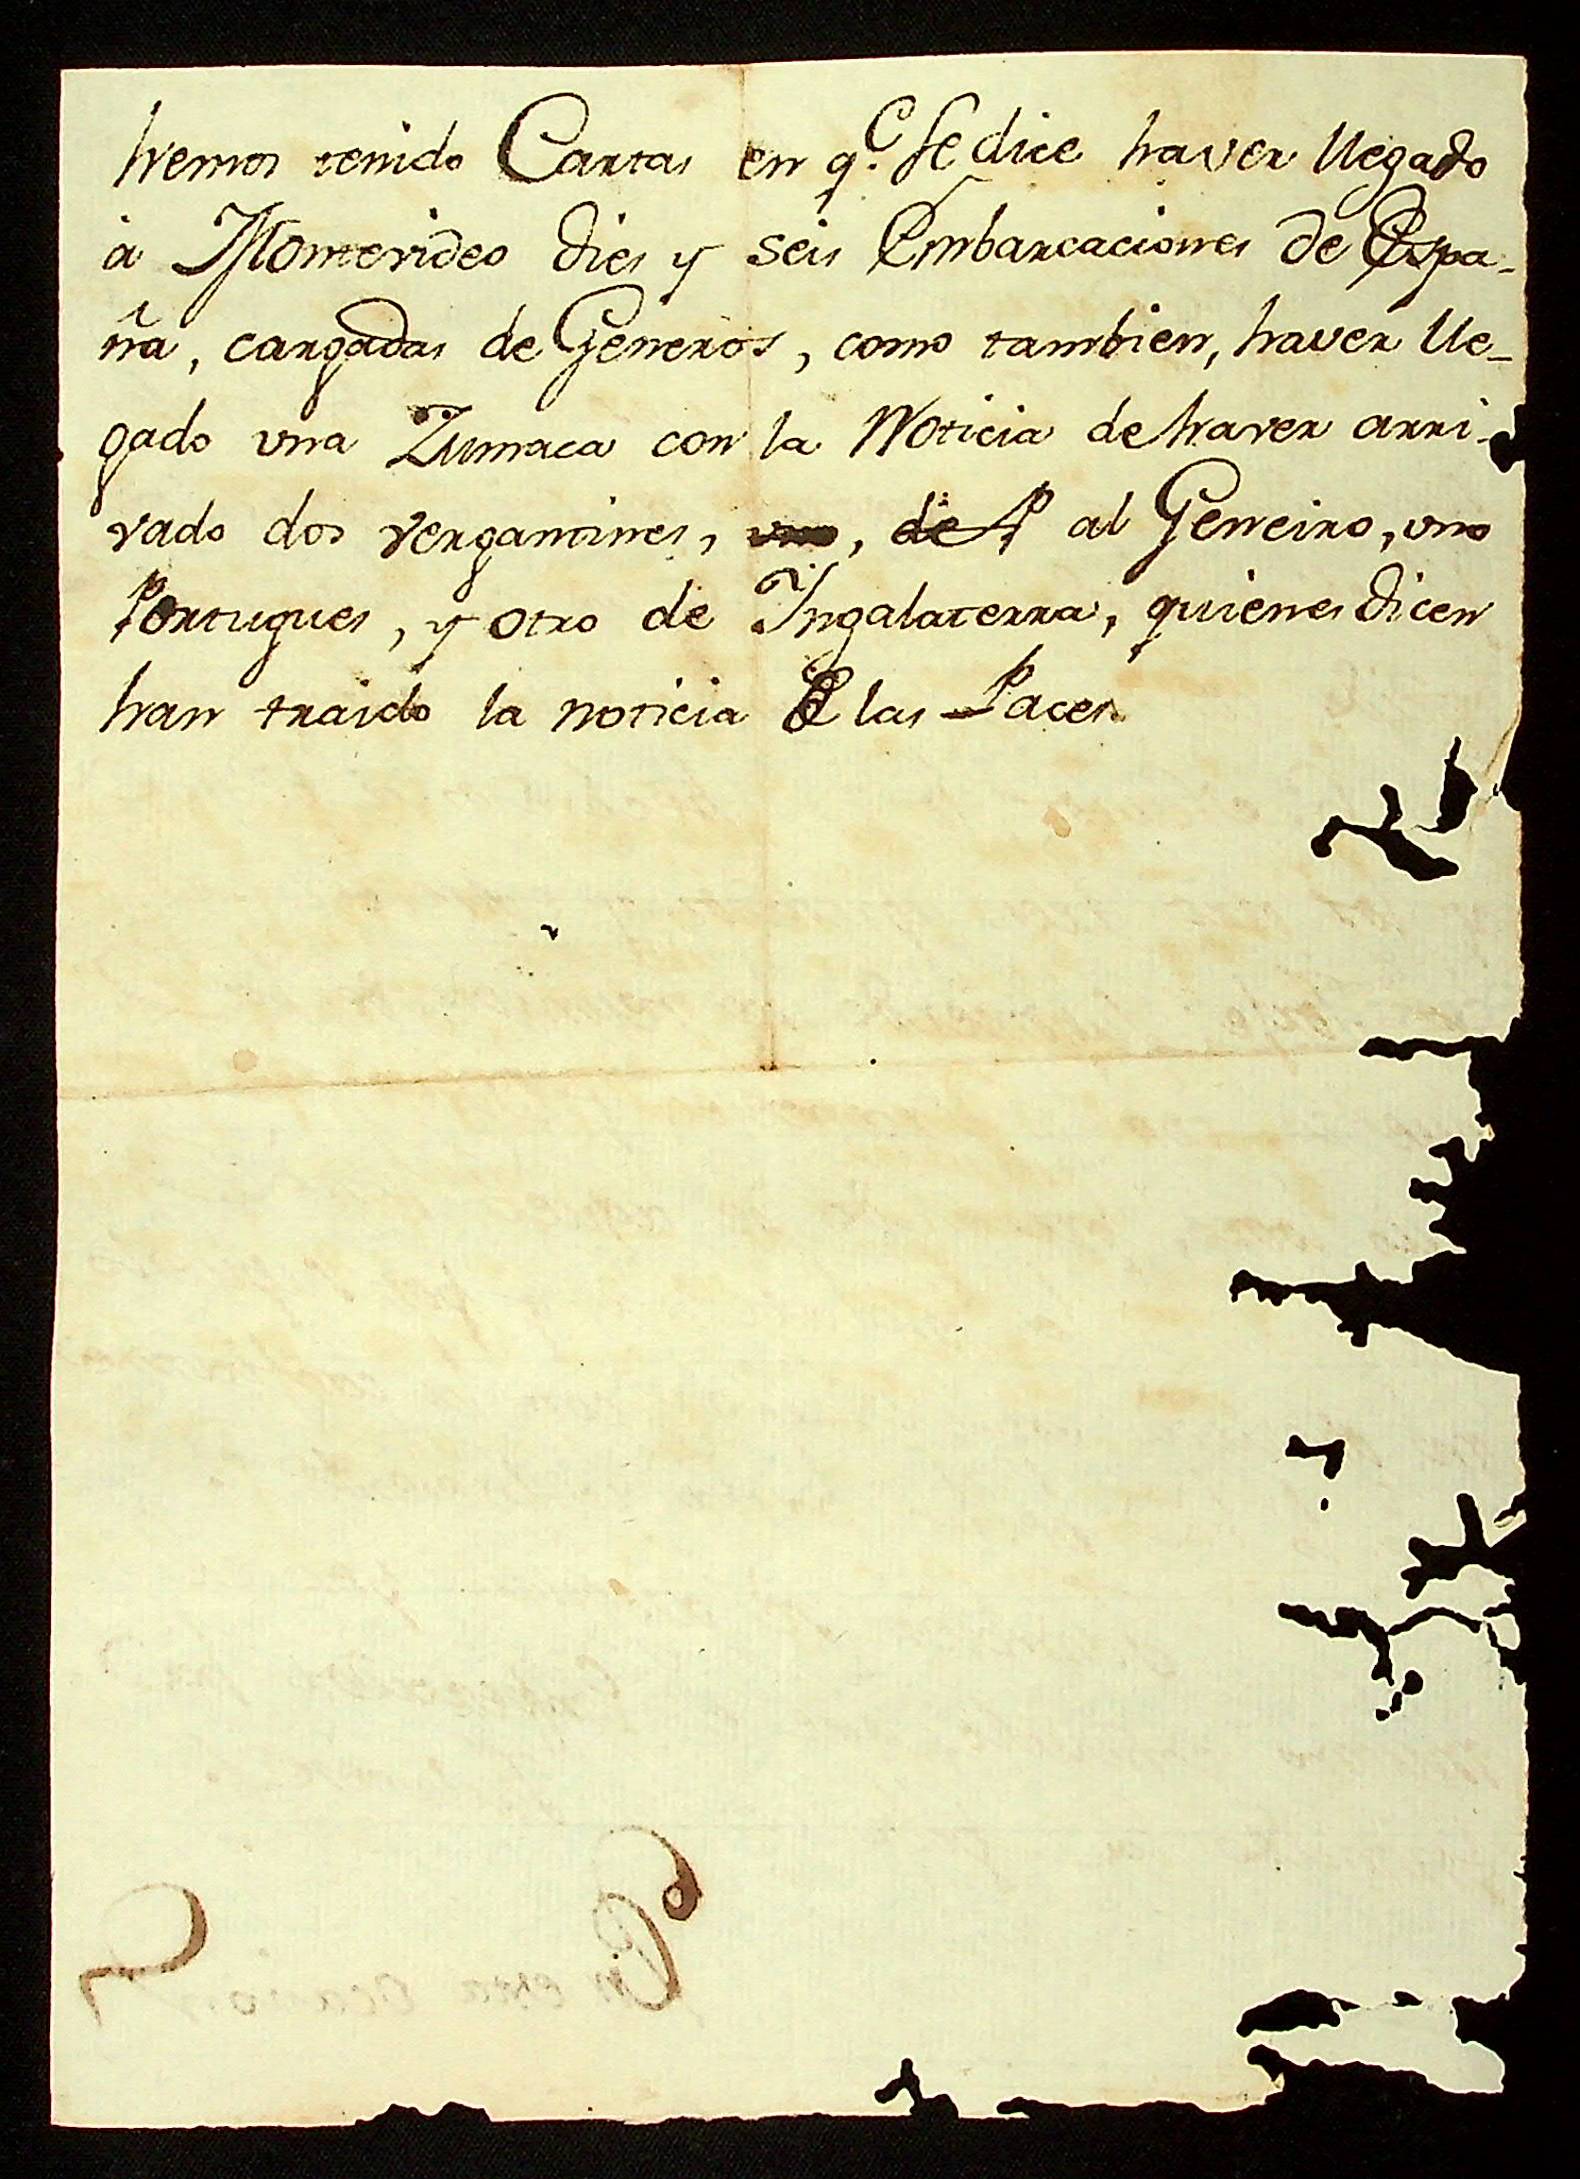 hemos tenido Cartas en q.e se dice haver llegado
a Montevideo dies y seis Embarcaciones de Espa-
ña, cargadas de Generos, como tambien, haver lle-
gado una Zumaca con la Noticia de haver arri-
vado dos vergantines, uno, de P al Geneiro, uno
Portugues, y otro de Yngalaterra, quienes dicen
han traido la noticia de las Paces.